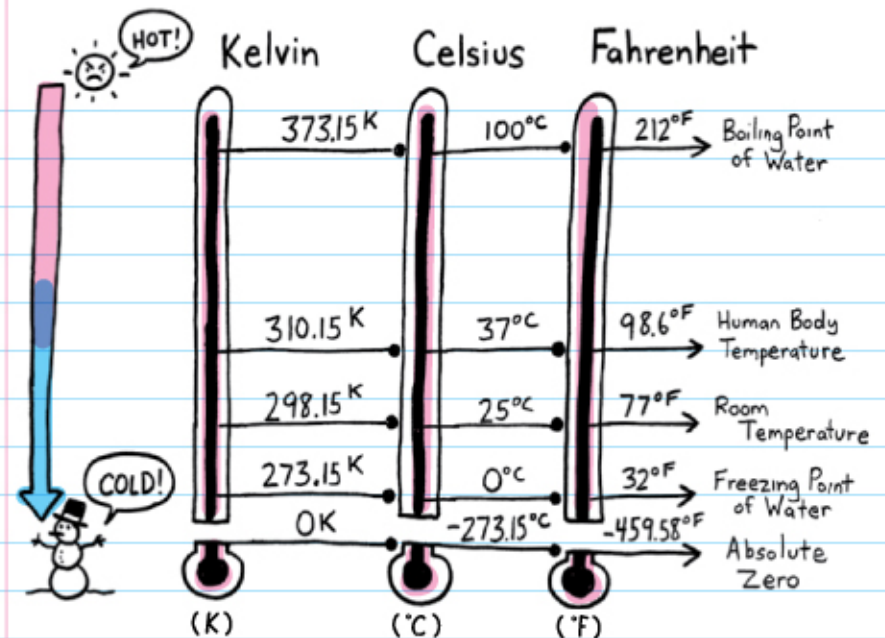 HOT!
Kelvin Celsius Fahrenheit
373.15 K 100°C 212°F Boiling Point
of Water
310.15 K 37°C 98.6°F Human Body
Temperature
298.15 K 25°C 77°F Room
Temperature
273.15 K 0°C 32°F Freezing Point
of Water
COLD!
0K -273.15°C -459.58°F Absolute
Zero
(K) (°C) (°F)